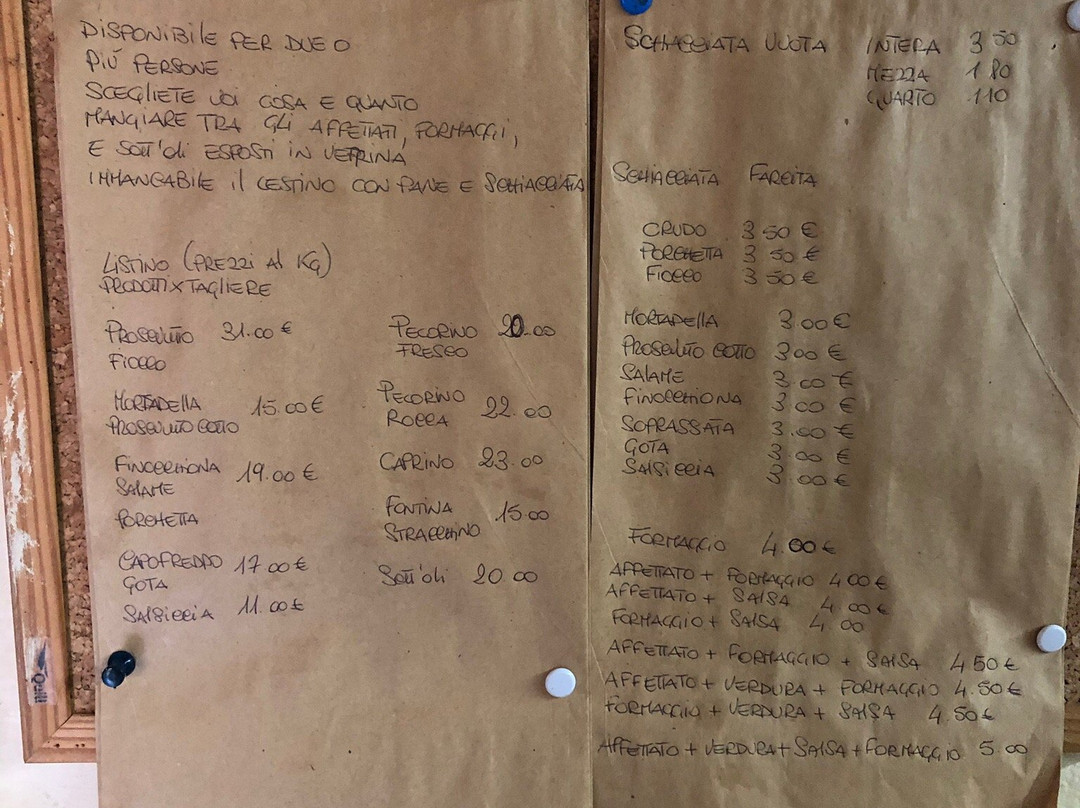 DISPONIBILE PER DUE O
PIÚ PERSONE
SCEGLIETE VOI COSA E QUANTO
MANGIARE TRA GLI AFFETTATI, FORMAGGI,
E SOTT'OLI ESPOSTI IN VETRINA
IMMANCABILE IL CESTINO CON PANE E SCHIACCIATA
LISTINO (PREZZI AL KG)
PRODOTTI X TAGLIERE
PROSCIUTTO 31.00 €
FIOCCO
MORTADELLA 15.00 €
PROSCIUTTO COTTO
FINOCCHIONA 19.00 €
SALAME
PORCHETTA
CAPOFREDDO 17.00 €
GOTA
SALSICCIA 11.00 €
PECORINO 20.00
FRESCO
PECORINO 22.00
ROCCA
CAPRINO 23.00
FONTINA 15.00
STRACCHINO
SOTT'OLI 20.00
SCHIACCIATA VUOTA INTERA 3 50
MEZZA 1 80
QUARTO 1 10
SCHIACCIATA FARCITA
CRUDO 3 50 €
PORCHETTA 3 50 €
FIOCCO 3 50 €
MORTADELLA 3.00 €
PROSCIUTTO COTTO 3 00 €
SALAME 3.00 €
FINOCCHIONA 3.00 €
SOPRASSATA 3.00 €
GOTA 3.00 €
SALSICCIA 3.00 €
FORMAGGIO 4.00 €
AFFETTATO + FORMAGGIO 4 00 €
AFFETTATO + SALSA 4 00 €
FORMAGGIO + SALSA 4 00
AFFETTATO + FORMAGGIO + SALSA 4 50 €
AFFETTATO + VERDURA + FORMAGGIO 4.50 €
FORMAGGIO + VERDURA + SALSA 4.50 €
AFFETTATO + VERDURA + SALSA + FORMAGGIO 5.00